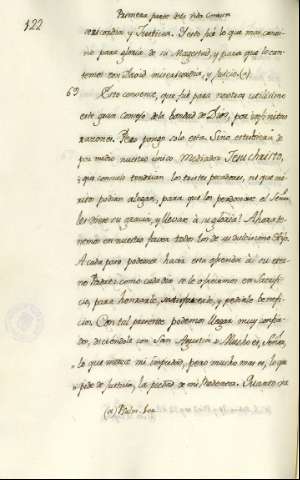 122
Primera parte de la vida
misericordia y Justicia. Y esto fué lo que mas convi-
nio para gloria de su Magestad, y para que le can-
temos con David misericordia, y juicio. (a)
63
Esto convence, que fué para nosotros utilisimo
este gran consejo de la bondad de Dios, por infinitas
razones. Pero pongo sola esta. Sino estubiera de
por medio nuestro unico Mediador Jesu christo,
que consuelo tendrian los tristes pecadores, ni que me-
ritos podian alegar, para que los perdonase el Señor,
les diese su gracia, y llevase à su gloria? Ahora te-
nemos en nuestro favor todos los de su dulcisimo Hijo.
A cada paso podemos hacer esta ofrenda à su eter-
no Padre; como cada dia se le ofrecemos en Sacrifi-
cio, para honrarle, satisfacerle, y pedirle benefi-
cios. Con tal presente podemos llegar muy confia-
dos, diciendole con San Agustin: Mucho es, Señor,
lo que merece mi impiedad, pero mucho mas es, lo que
pide de justicia, la piedad de mi Redentor. Quanto
(a) Psalm. 100